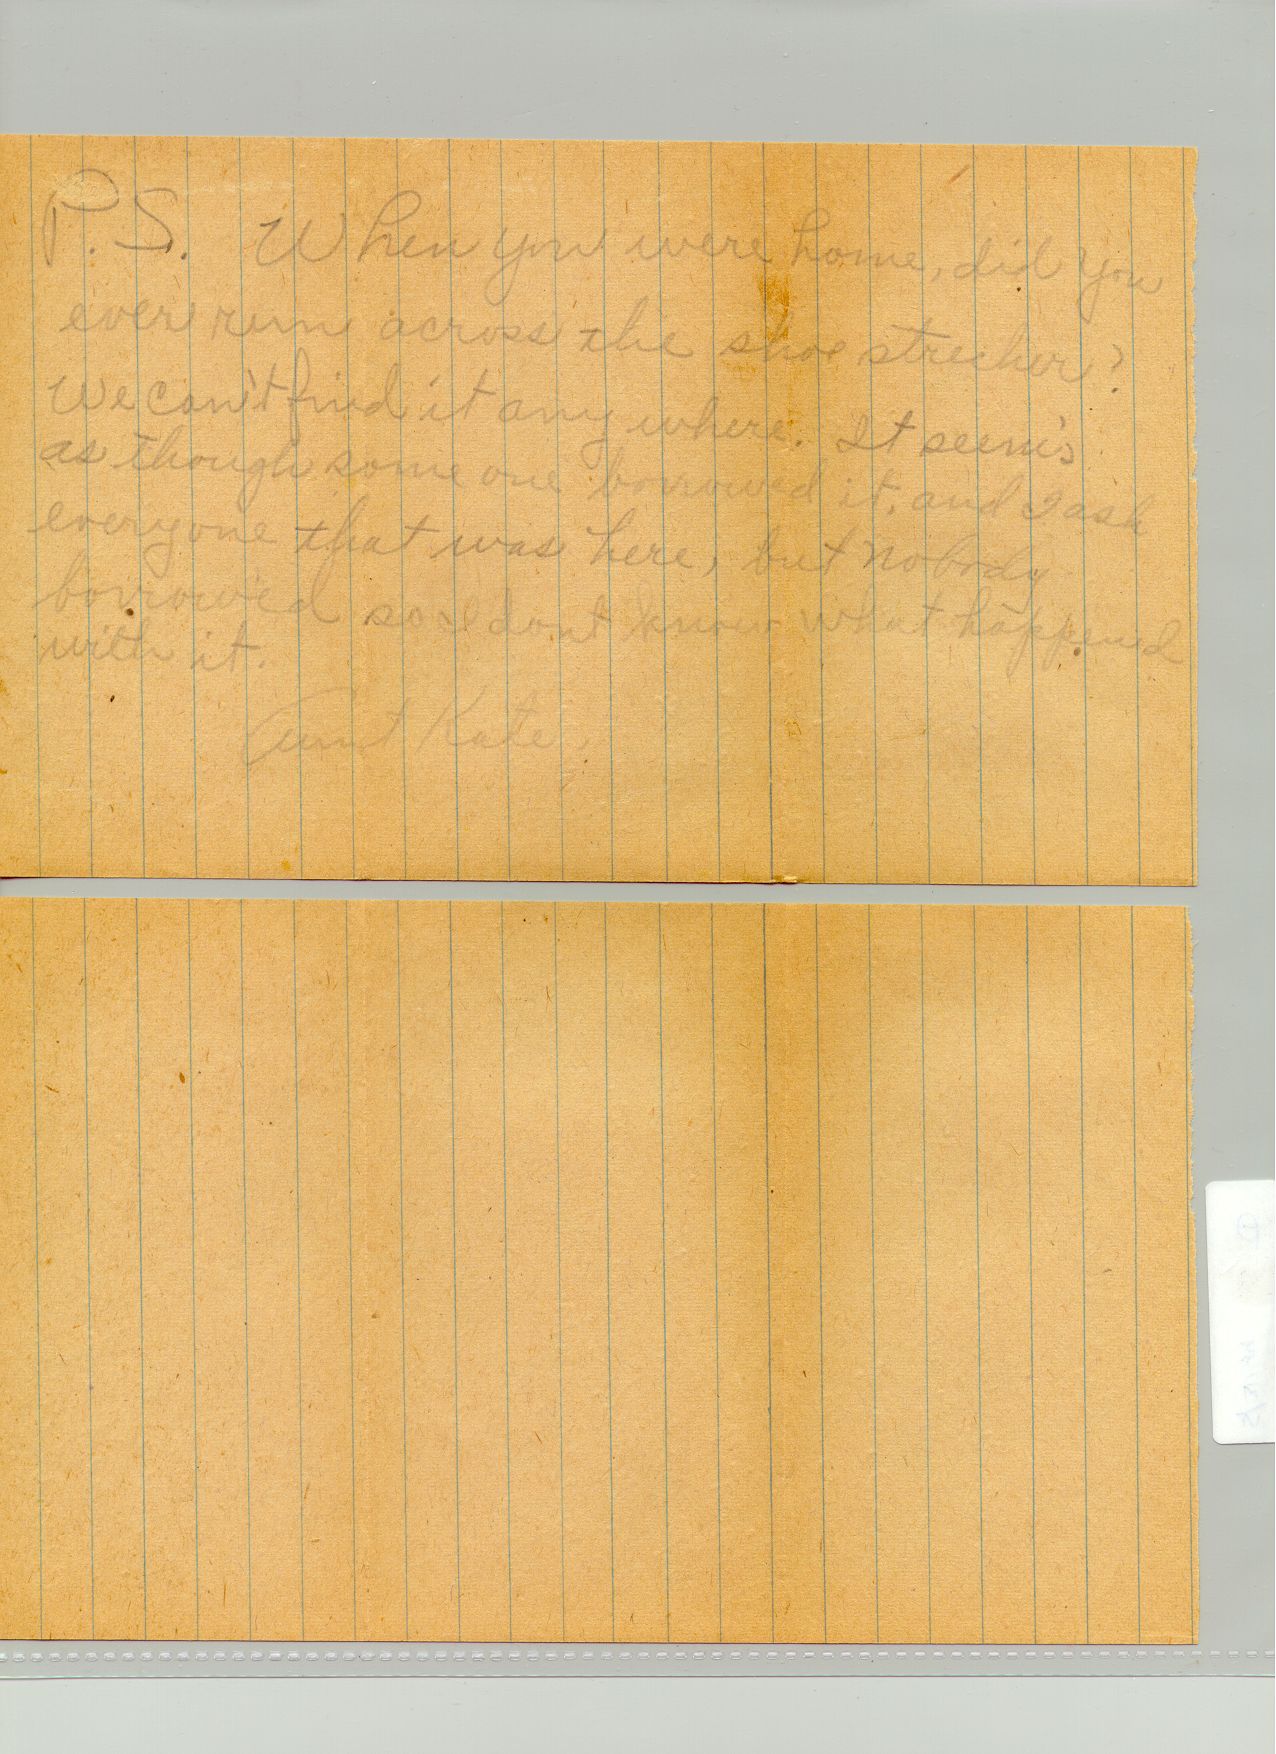 P.S. When you were home, did you
ever run across the shoe strecher?
We can't find it any where. It seem's
as though some one borrowed it, and I ask
everyone that was here, but nobody
borrowed so I dont know what happened
with it.
Aunt Kate.